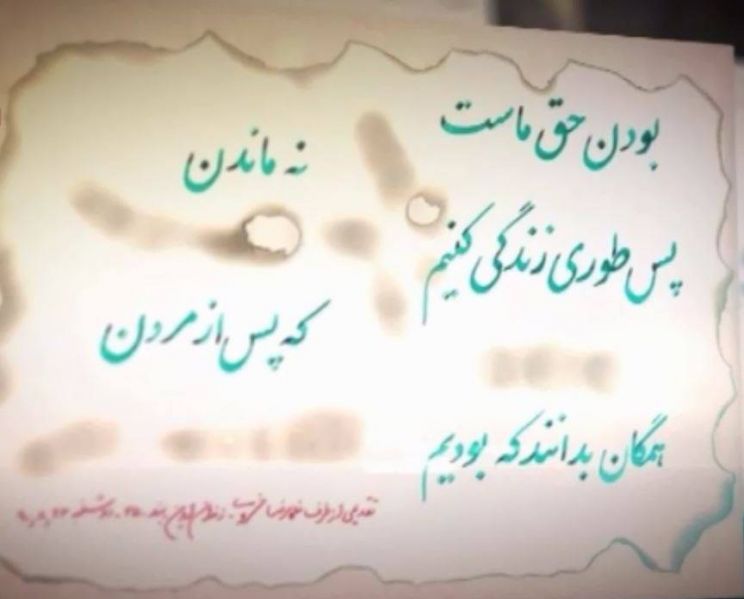 بودن حق ماست
نه ماندن
پس طوری زندگی کنیم
که پس از مردن
همگان بدانند که بودیم
تقدیمی از طرف